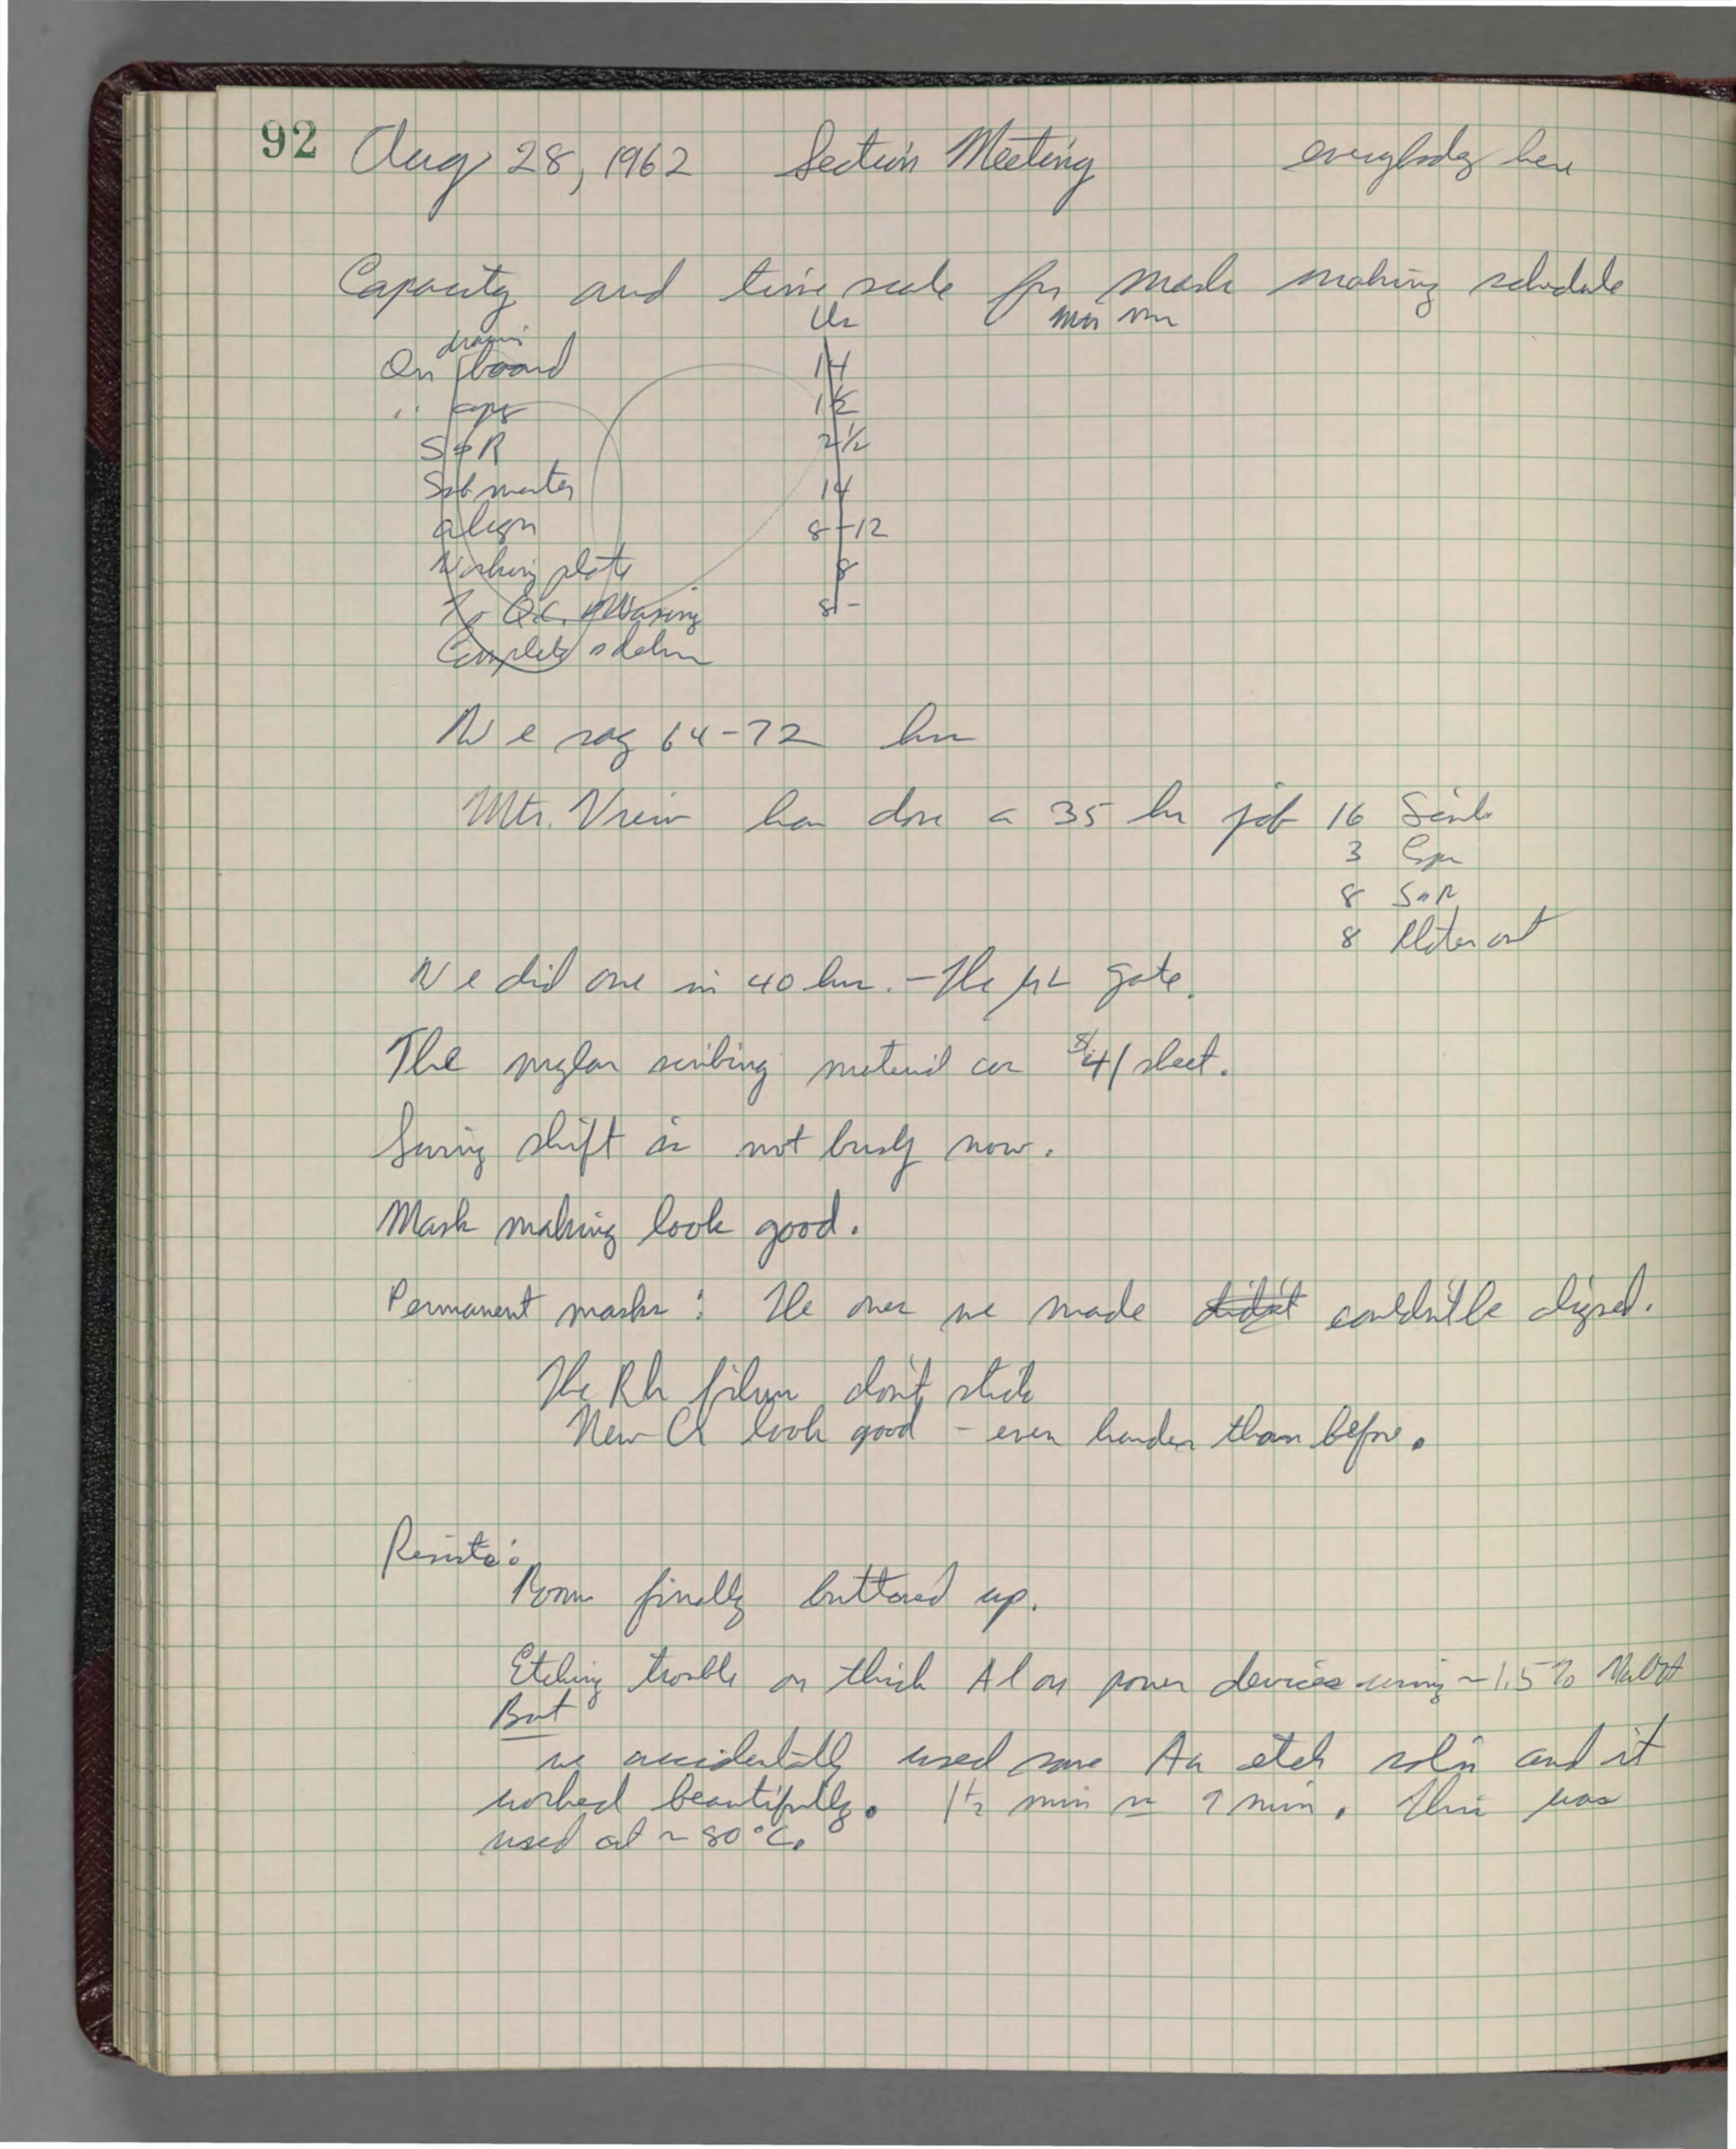 92 Aug 28, 1962 Section Meeting everybody here
Capacity and time scale for mask making schedule
Us Mtn Vw
drawing
On board 14
" copy 1½
S & R 2½
Sub master 14
align 8-12
Working plate 8
To Q.C. 8-
Complete
We say 64-72 hrs
Mtn. View has done a 35 hr job 16 Scrib
3
8 S&R
8 Plates out
We did one in 40 hrs. - The gate.
The mylar scribing material is $4/sheet.
Swing shift is not busy now.
Mask making looks good.
Permanent masks: The ones we made didn't couldn't be aligned.
The Rh films don't stick
New Cr look good - even harder than before.
Resists:
Room finally buttoned up.
Etching trouble on thick Al on power devices using ~1.5% NaOH
But
we accidentally used some Au etch sol'n and it
worked beautifully. 1½ min min. This was
used at ~80°C.